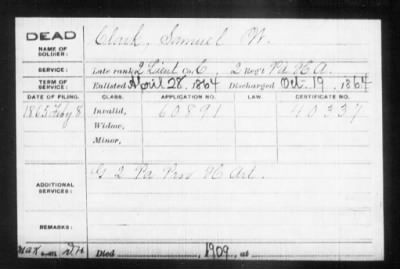 DEAD
NAME OF SOLDIER: Clark, Samuel W.
SERVICE: Late rank 2 Lieut Co. C 2 Reg't Pa. H A.
TERM OF SERVICE: Enlisted April 28, 1864 Discharged Oct. 19, 1864
DATE OF FILING. CLASS. APPLICATION NO. LAW. CERTIFICATE NO.
1865 Feby 8 Invalid, 60891 40337
Widow,
Minor,
ADDITIONAL SERVICES: G 2 Pa Prov H Art.
REMARKS:
Died 1909, at